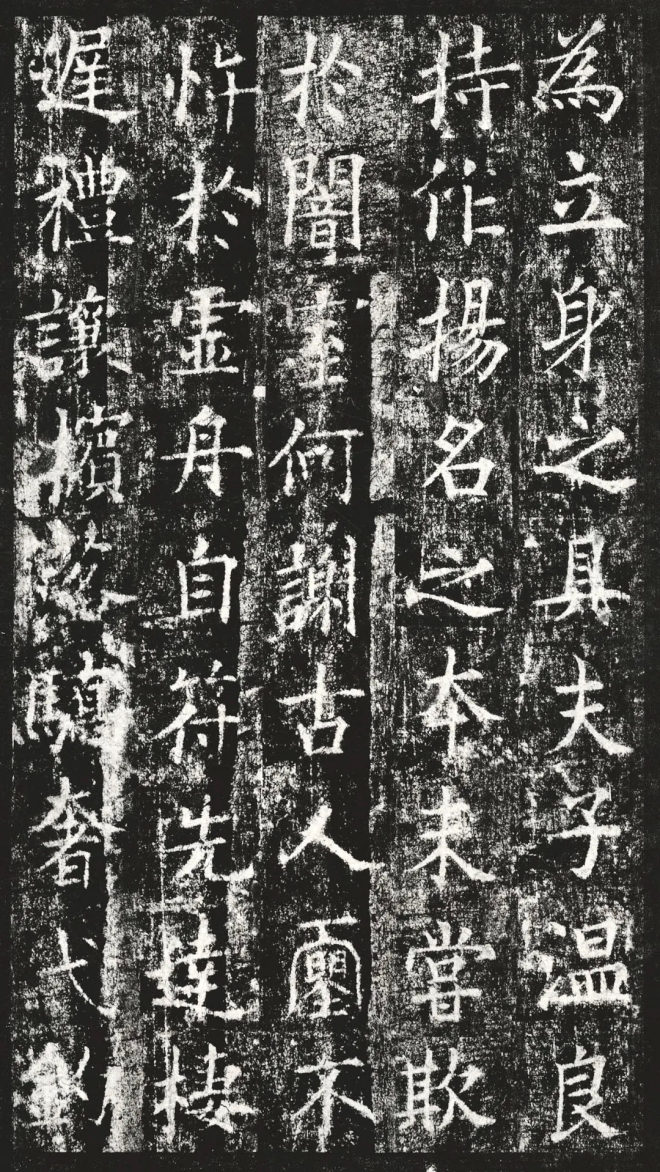 為立身之具夫子温良
持作揚名之本未嘗欺
於闇室何謝古人不
忤於虛舟自符先達棲
遲禮讓擯落驕奢弋釣